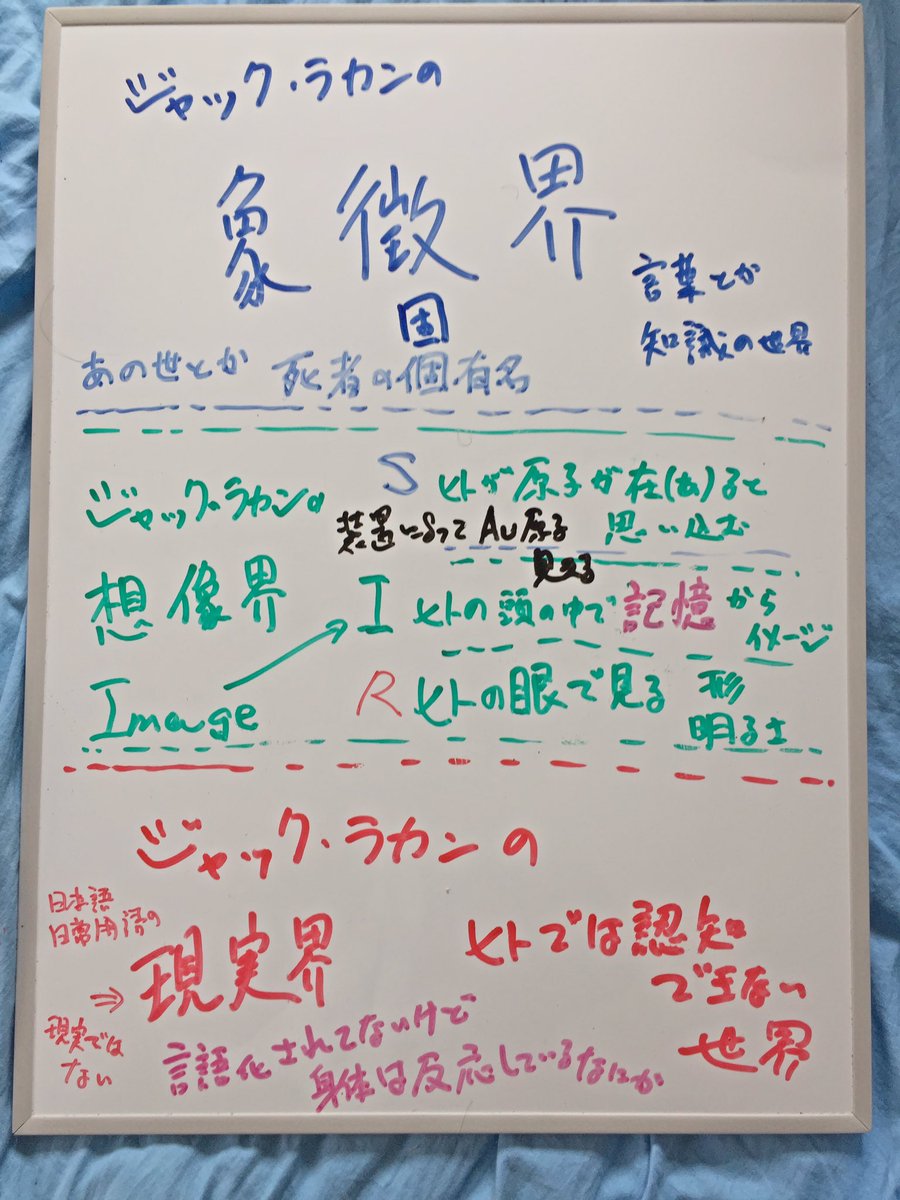 ジャック・ラカンの
象徴界
言葉とか
知識の世界
固
あの世とか 死者の個有名
ジャック・ラカンの
想像界
Image
S ヒトが原子が在(あ)ると
思い込む
装置によって Au原子
見える
I ヒトの頭の中で記憶から
イメージ
R ヒトの眼で見る 形
明るさ
ジャック・ラカンの
日本語
日常用語の
⇒ 現実界
現実では
ない
ヒトでは認知
できない
世界
言語化されてないけど
身体は反応しているなにか